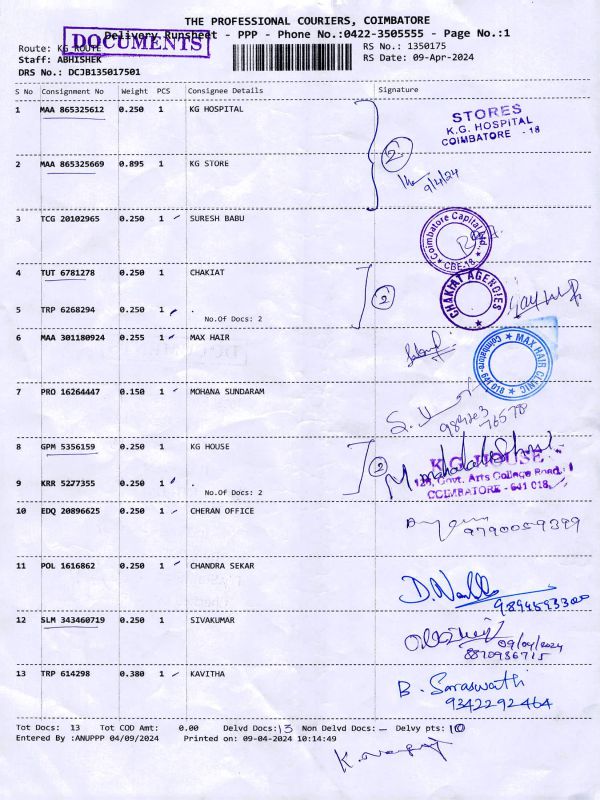 THE PROFESSIONAL COURIERS, COIMBATORE
Delivery Runsheet - PPP - Phone No.:0422-3505555 - Page No.:1
DOCUMENTS
Route: KG ROUTE
RS No.: 1350175
Staff: ABHISHEK
RS Date: 09-Apr-2024
DRS No.: DCJB135017501
S No Consignment No Weight PCS Consignee Details Signature
1 MAA 865325612 0.250 1 KG HOSPITAL
STORES
K.G. HOSPITAL
COIMBATORE - 18
2
2 MAA 865325669 0.895 1 KG STORE
9/4/24
3 TCG 20102965 0.250 1 SURESH BABU
Coimbatore Capital Ltd.,
CBE-18
4 TUT 6781278 0.250 1 CHAKIAT
CHAKIAT AGENCIES
2
5 TRP 6268294 0.250 1 .
No.Of Docs: 2
6 MAA 301180924 0.255 1 MAX HAIR
MAX HAIR CLINIC
Coimbatore-641 018
7 PRO 16264447 0.150 1 MOHANA SUNDARAM
8 GPM 5356159 0.250 1 KG HOUSE
2
K.G. HOUSE
Govt. Arts College Road,
COIMBATORE - 641 018
9 KRR 5277355 0.250 1 .
No.Of Docs: 2
10 EDQ 20896625 0.250 1 CHERAN OFFICE
9790059399
11 POL 1616862 0.250 1 CHANDRA SEKAR
12 SLM 343460719 0.250 1 SIVAKUMAR
09/04/2024
8870986715
13 TRP 614298 0.380 1 KAVITHA
B. Saraswathi
9342292464
Tot Docs: 13 Tot COD Amt: 0.00 Delvd Docs: 13 Non Delvd Docs: — Delvy pts: 10
Entered By :ANUPPP 04/09/2024 Printed on: 09-04-2024 10:14:49